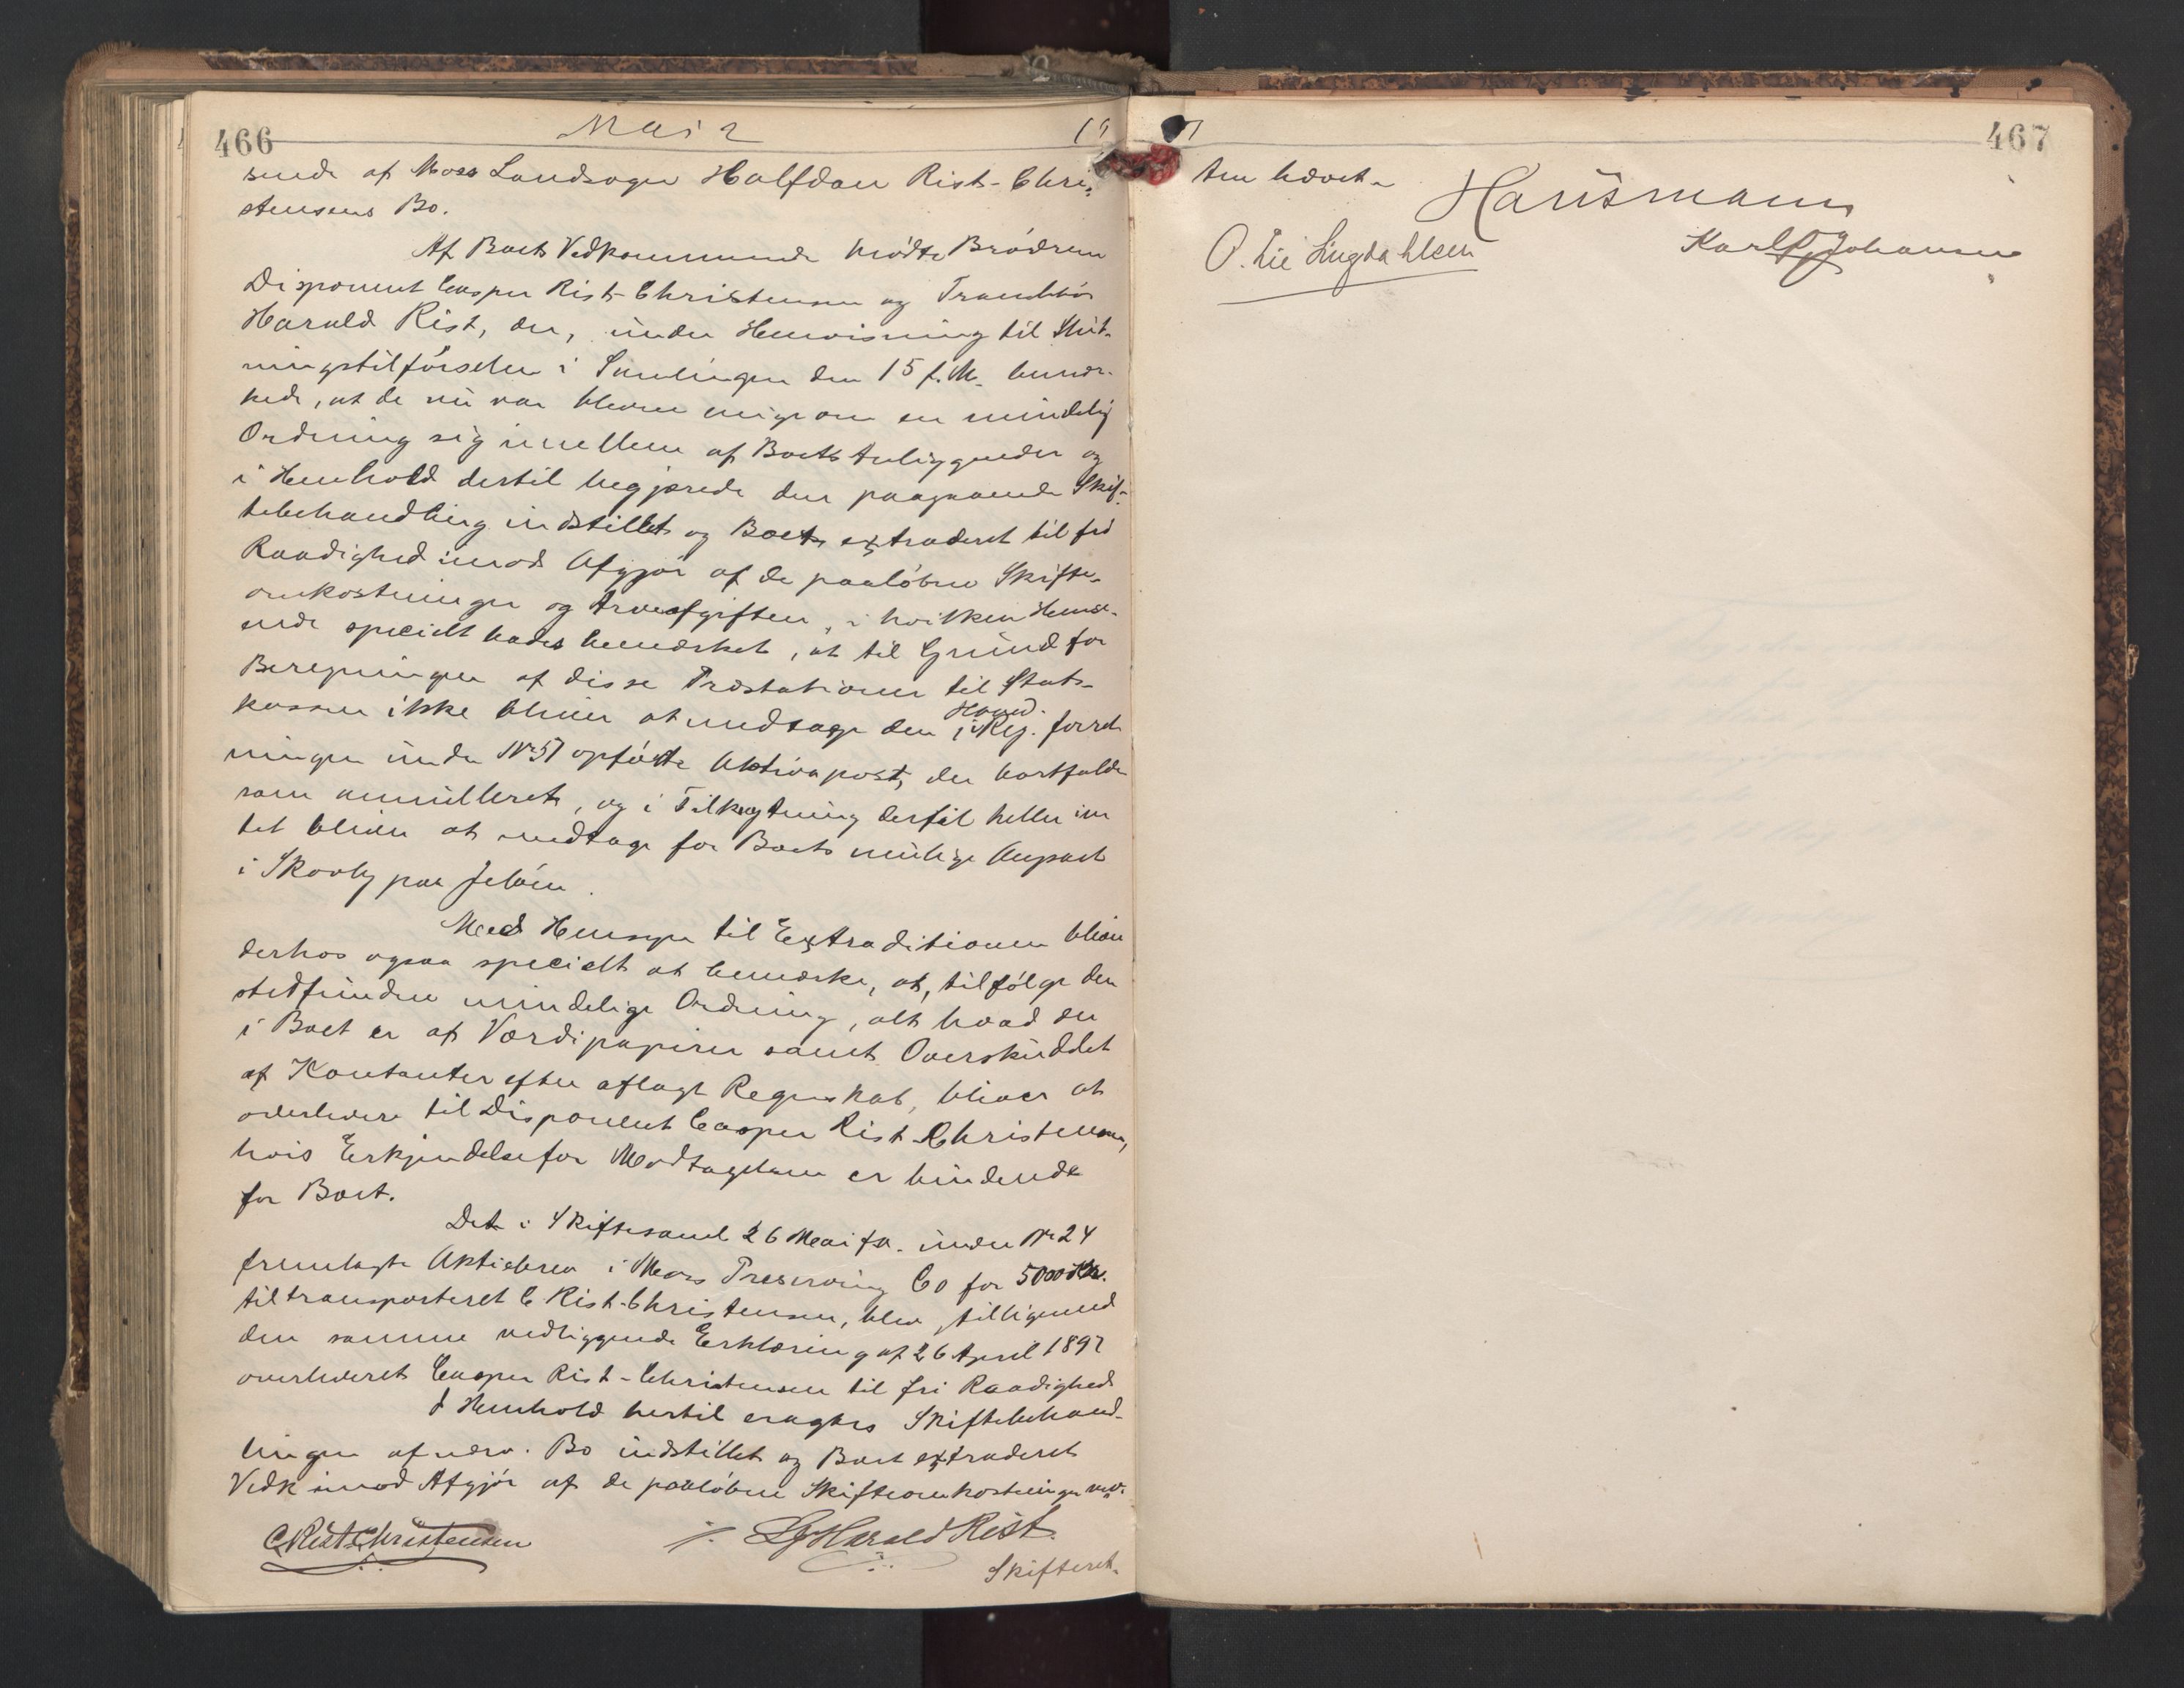 466 Mai 2
sende af Moss Landsogn Halfdan Rist-Chri-
stensens Bo.
Af Boets Vedkommende mødte Brødrene
Disponent Casper Rist-Christensen og
Harald Rist, der, under Henvisning til Slut-
ningstilførselen i Samlingen den 15 f. M. bemær-
kede, at de nu var blevne enige om en mindelig
Ordning sig imellem af Boets Anliggender og
i Henhold dertil begjærede den paagaaende Skif-
tebehandling indstillet og Boet extraderet til fri
Raadighed imod Afgjør af de paaløbne Skifte-
omkostninger og Arveafgiften, i hvilken Hense-
ende specielt bades bemærket, at til Grund for
Beregningen af disse Præstationer til Stats-
kassen ikke bliver at medtage den i Reg. forret-
ningen under No 57 opførte Aktivapost, der bortfalder
som annulleret, og i Tilknytning dertil heller in-
tet bliver at medtage for Boets mulige Anpart
i Skovly paa Jeløen.
Med Hensyn til Extraditionen bliver
derhos ogsaa specielt at bemærke, at, tilfølge den
stedfundne mindelige Ordning, alt hvad der
i Boet er af Værdipapirer samt Overskuddet
af Kontanter efter aflagt Regnskab, bliver at
overlevere til Disponent Casper Rist-Christensen,
hvis Erkjendelse for Modtagelsen er bindende
for Boet.
Det i Skiftesaml 26 Mai f.A. under No 24
fremlagte Aktiebrev i Moss Preserving Co for 5000 Kr.
tiltransporteret C Rist-Christensen, blev, tilligemed
den samme vedliggende Erklæring af 26 April 1897
overleveret Casper Rist-Christensen til fri Raadighed
I Henhold hertil eragtes Skiftebehand-
lingen af nærv. Bo indstillet og Boet extraderet
Vedk imod Afgjør af de paaløbne Skifteomkostninger m.v.
C Rist-Christensen Harald Rist.
Skifteret-
467
ten hævet.
Hansmann
O. Lie Lingdahlsen Karl Johansen